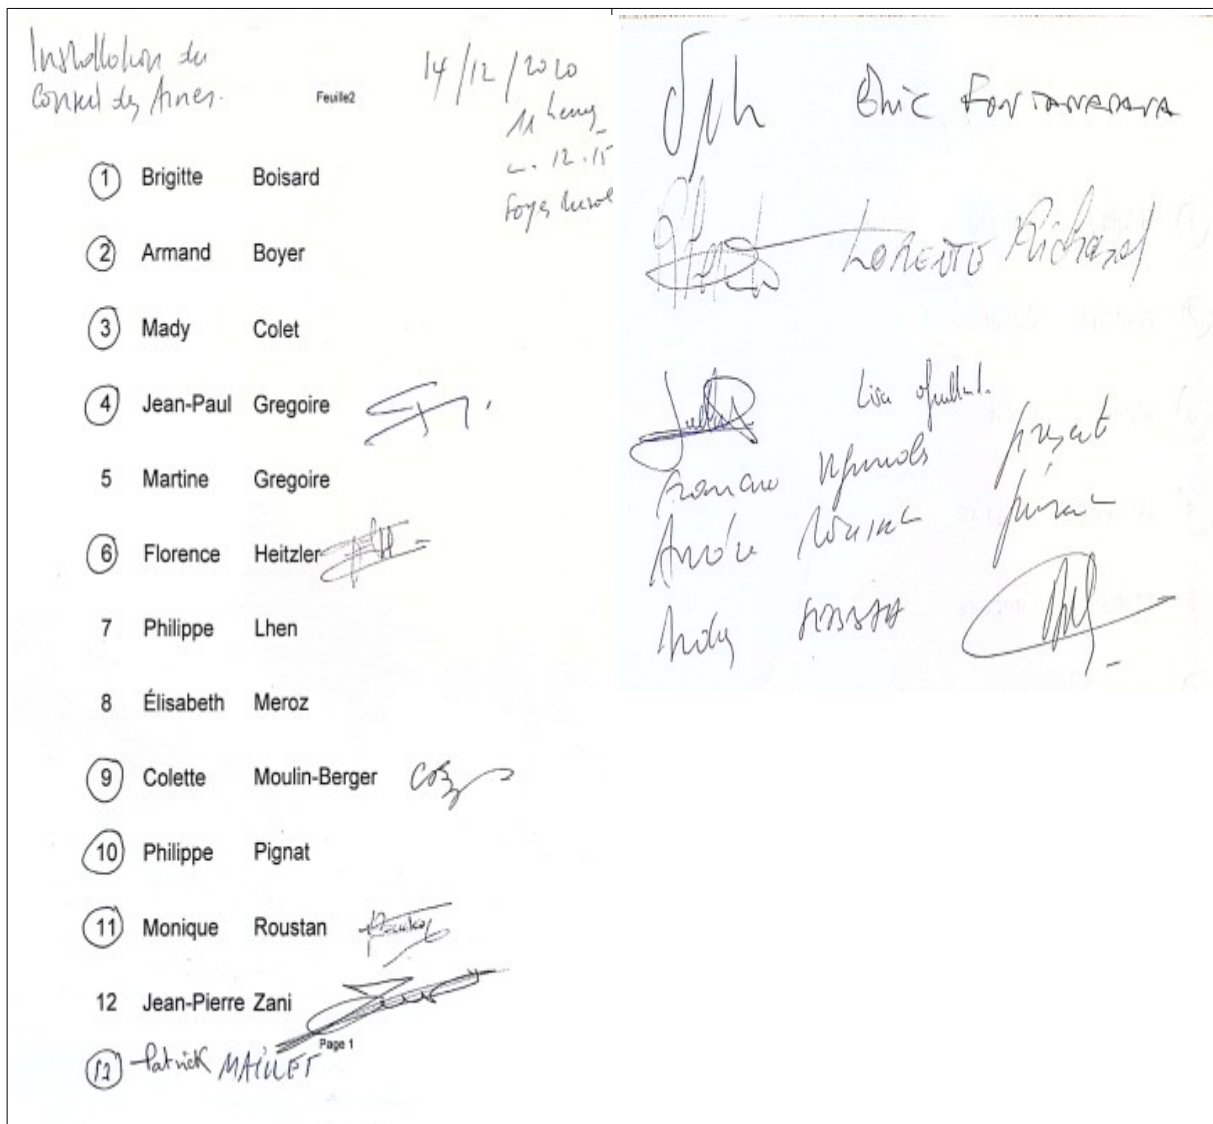 Installation du
Conseil des Aînés.
Feuille2
14/12/2020
11 heures
12.15
Foyer Rural
1 Brigitte Boisard
2 Armand Boyer
3 Mady Colet
4 Jean-Paul Gregoire
5 Martine Gregoire
6 Florence Heitzler
7 Philippe Lhen
8 Élisabeth Meroz
9 Colette Moulin-Berger
10 Philippe Pignat
11 Monique Roustan
12 Jean-Pierre Zani
Page 1
12 Patrick MAILLET
FONTANARAVA
LORENTE Richard
Lisa
present
André